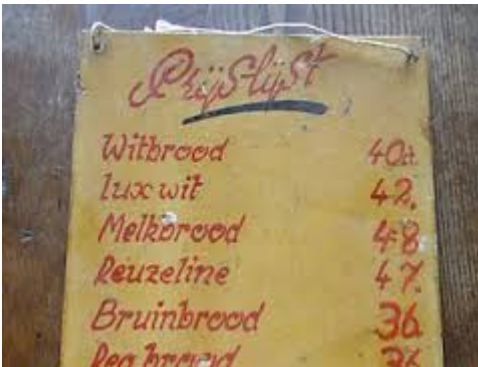 Prijslijst
Witbrood 40ct.
lux wit 42.
Melkbrood 48
Reuzeline 47.
Bruinbrood 36.
Reg brood 36